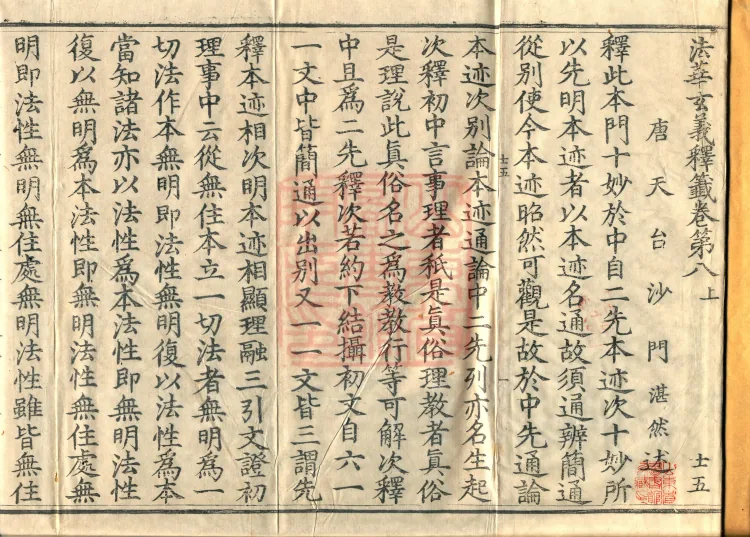 法華玄義釋籤卷第八上
士五
唐天台沙門湛然述
釋此本門十妙於中自二先本迹次十妙所
以先明本迹者以本迹名通故須通辨簡通
從別使今本迹昭然可觀是故於中先通論
士五
一
本迹次別論本迹通論中二先列亦名生起
次釋初中言事理者秖是眞俗理教者眞俗
是理說此眞俗名之爲教教行等可解次釋
中且爲二先釋次若約下結攝初文自六一
一文中皆簡通以出別又一一文皆三謂先
釋本迹相次明本迹相顯理融三引文證初
理事中云從無住本立一切法者無明爲一
切法作本無明即法性無明復以法性爲本
當知諸法亦以法性爲本法性即無明法性
復以無明爲本法性即無明法性無住處無
明即法性無明無住處無明法性雖皆無住